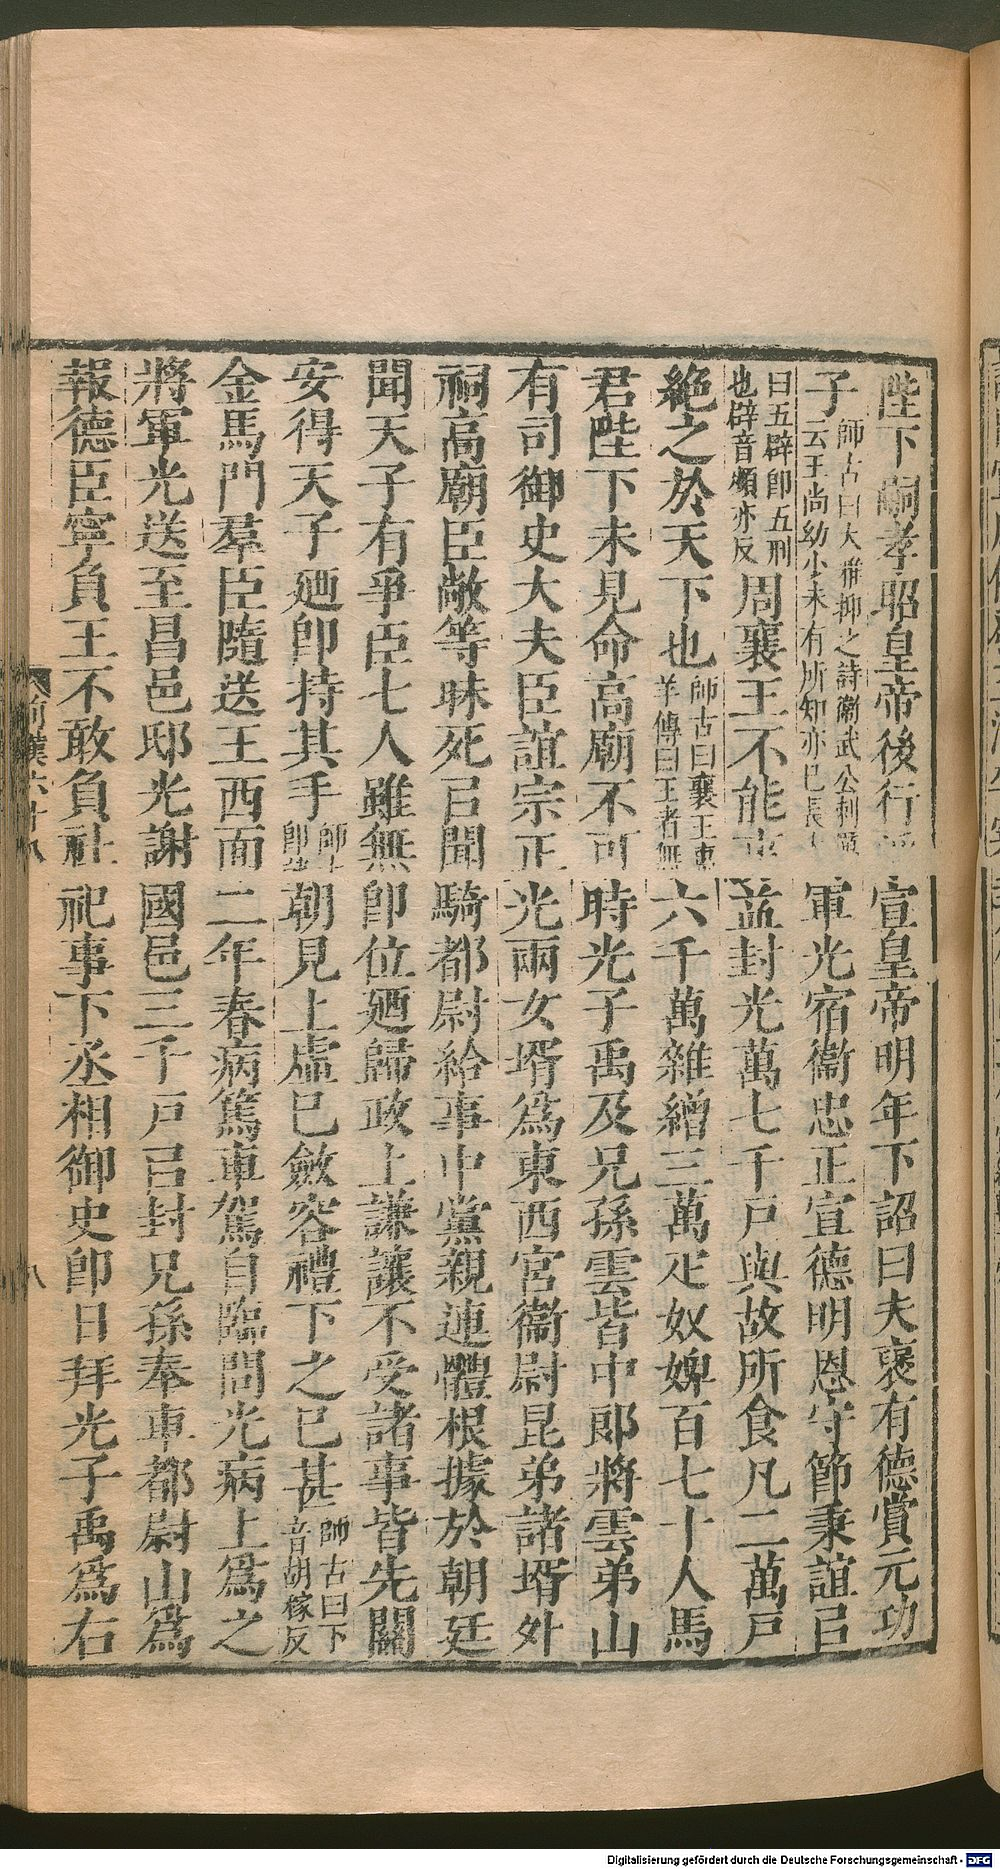 陛下嗣孝昭皇帝後行宣皇帝明年下詔曰夫襃有德賞元功
子師古曰大雅抑之詩衞武公刺厲云王尚幼小未有所知亦已長軍光宿衞忠正宣德明恩守節秉誼㠯
曰五辟即五刑也辟音頻亦反周襄王不能益封光萬七千戶與故所食凡二萬戶
絶之於天下也師古曰襄王羊傳曰王者無六千萬雜繒三萬疋奴婢百七十人馬
君陛下未見命高廟不可時光子禹及兄孫雲皆中郞將雲弟山
有司御史大夫臣誼宗正光兩女壻爲東西宮衞尉昆弟諸壻外
祠高廟臣敞等昧死㠯聞騎都尉給事中黨親連體根據於朝廷
聞天子有爭臣七人雖無即位廼歸政上謙讓不受諸事皆先關
安得天子廼即持其手師即朝見上虛已斂容禮下之已甚師古曰下音胡稼反
金馬門羣臣隨送王西面二年春病篤車駕自臨問光病上爲之
將軍光送至昌邑邸光謝國邑三千戶㠯封兄孫奉車都尉山爲
報德臣寧負王不敢負社祀事下丞相御史即日拜光子禹爲右
前漢六十八
八
Digitalisierung gefördert durch die Deutsche Forschungsgemeinschaft - DFG